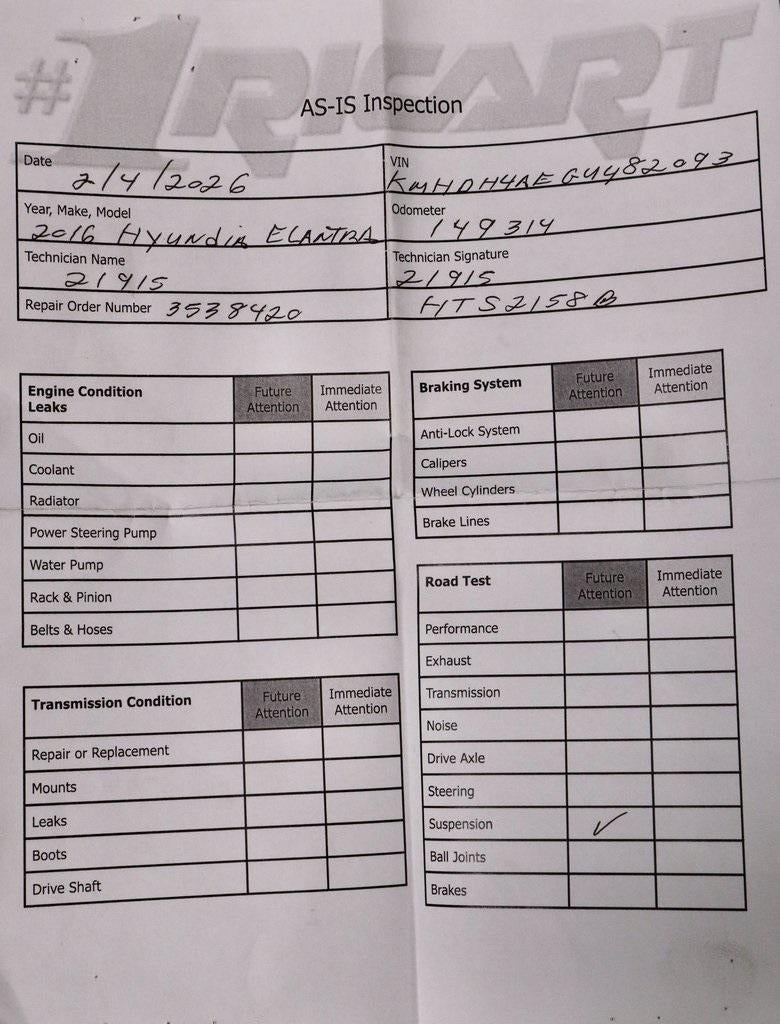 #1RICART
AS-IS Inspection
Date 2/4/2026
VIN KMHDH4AEGU482093
Year, Make, Model 2016 HyundiA ELANTRA
Odometer 149314
Technician Name 21915
Technician Signature 21915
Repair Order Number 3538420
HTS2158B
Engine Condition Leaks Future Attention Immediate Attention
Oil
Coolant
Radiator
Power Steering Pump
Water Pump
Rack & Pinion
Belts & Hoses
Braking System Future Attention Immediate Attention
Anti-Lock System
Calipers
Wheel Cylinders
Brake Lines
Transmission Condition Future Attention Immediate Attention
Repair or Replacement
Mounts
Leaks
Boots
Drive Shaft
Road Test Future Attention Immediate Attention
Performance
Exhaust
Transmission
Noise
Drive Axle
Steering
Suspension ✓
Ball Joints
Brakes